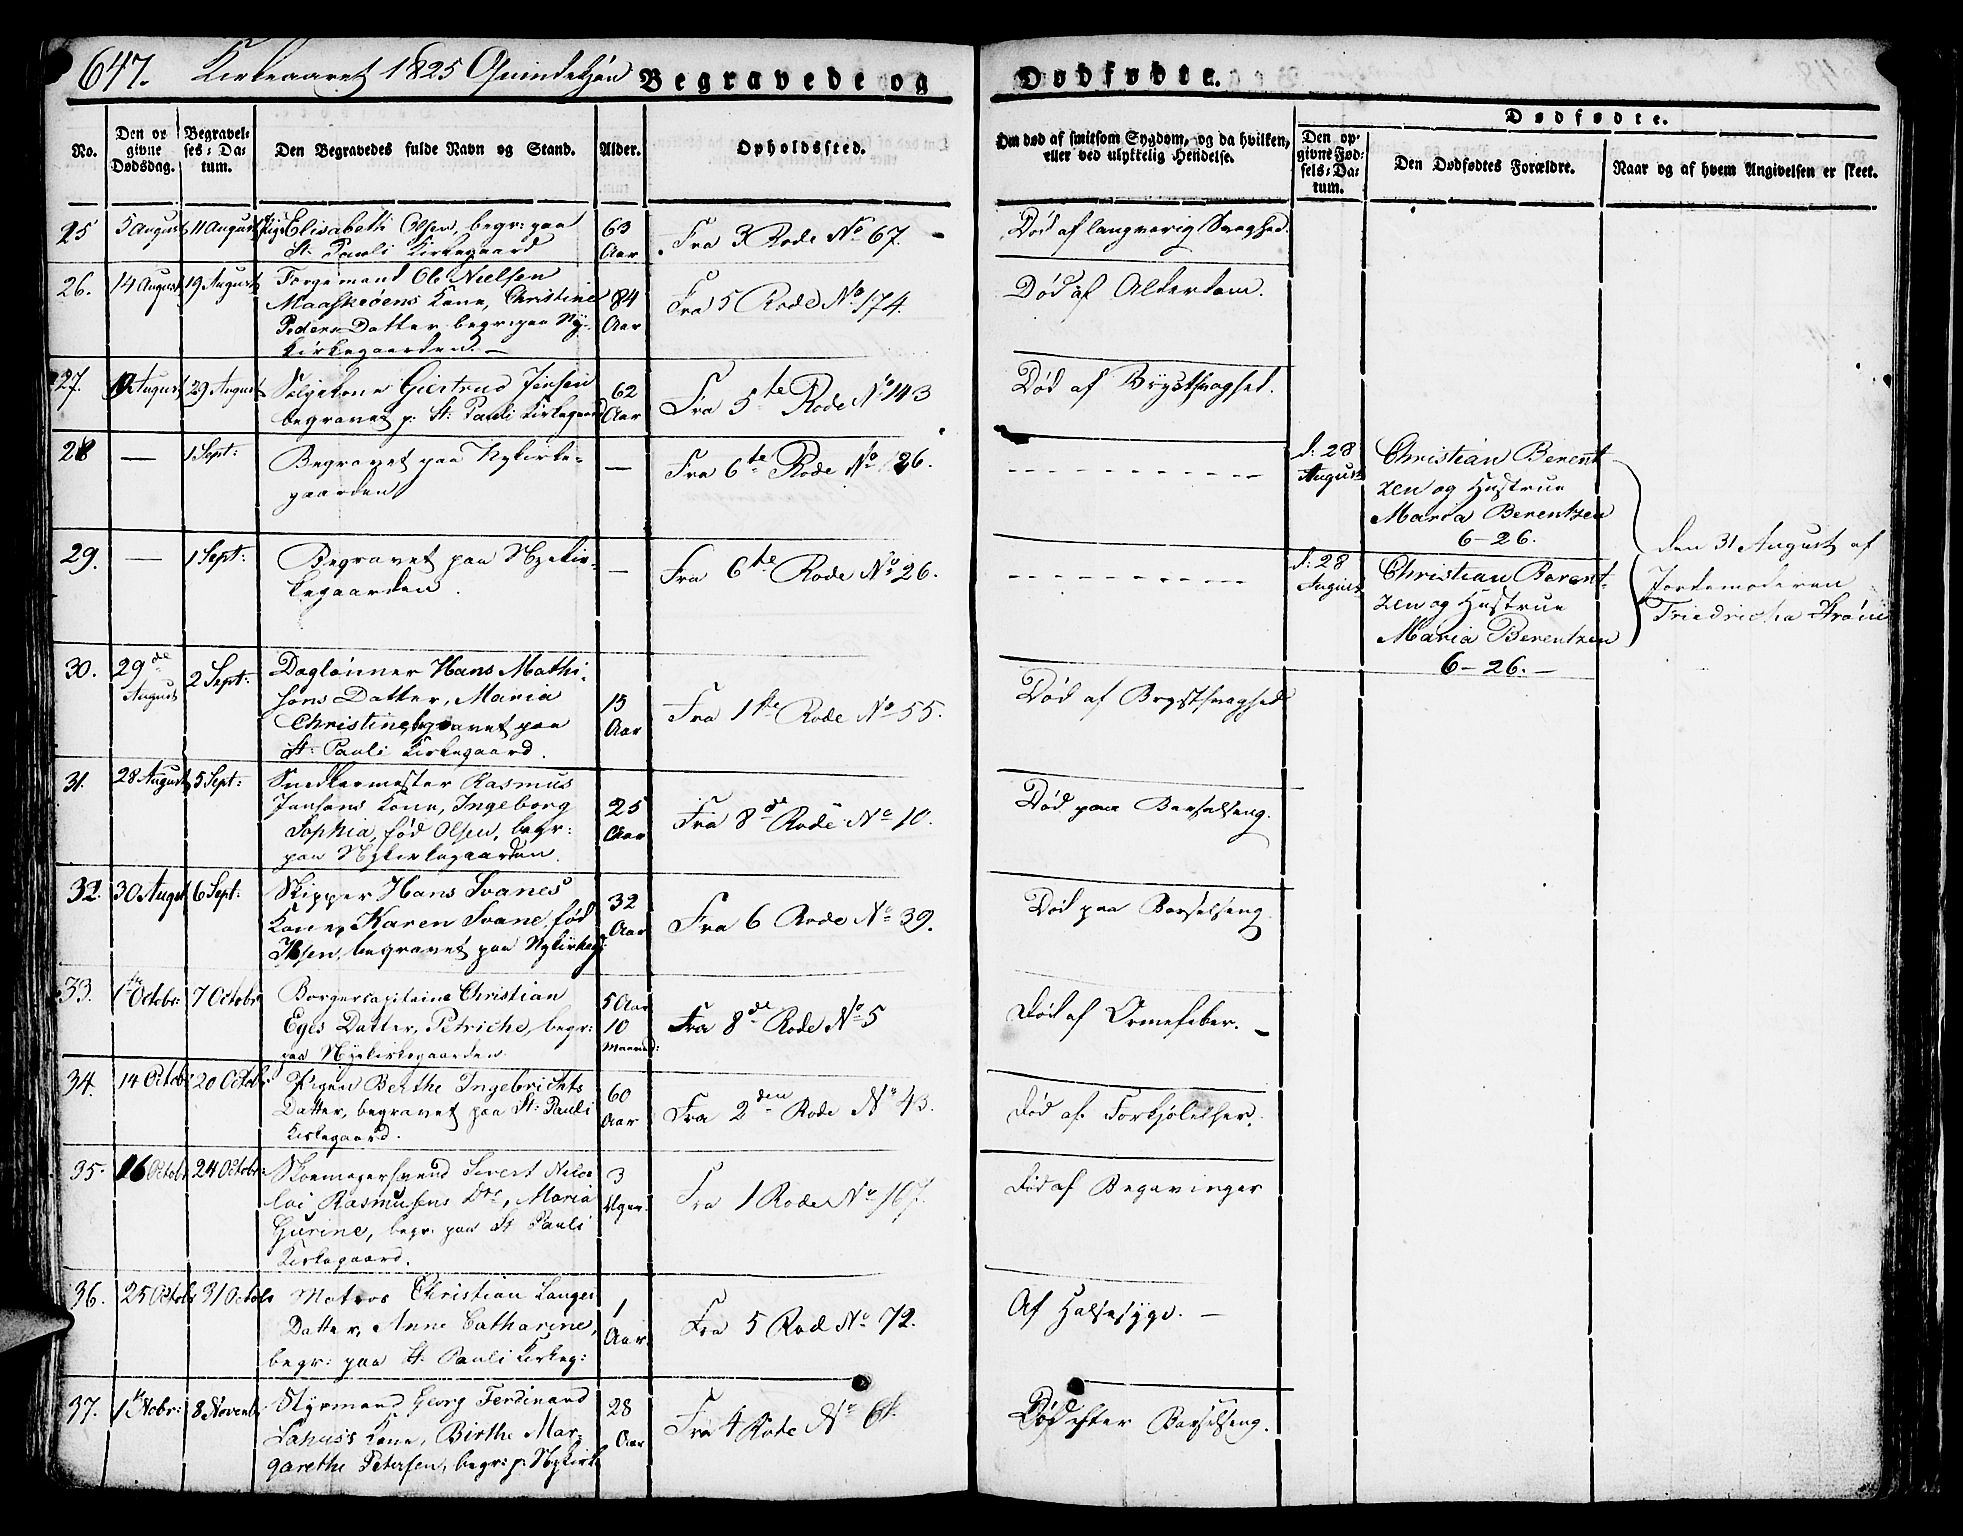 647. Kirkeaaret 1825 Qvindekjøn Begravede og Dødfødte.
No.
Den opgivne Dødsdag.
Begravelses-Datum.
Den Begravedes fulde Navn og Stand.
Alder.
Opholdssted.
Om død af smitsom Sygdom, og da hvilken, eller ved ulykkelig Hendelse.
Dødfødte.
Den opgivne Fødsels-Datum.
Den Dødfødtes Forældre.
Naar og af hvem Angivelsen er skeet.
25 5 August 11 August Elisabeth Olsen, begr: paa 63
St. Pauli Kirkegaard Aar Fra 3 Rode No 67. Død af langvarig Svaghed.
26. 14 August 19 August Forgemand Ole Nielsen
Maaskeøens Kone, Christine 84 Fra 5 Rode No 174. Død af Alderdom.
Peders Datter, begr: paa Ny- Aar
kirkegaarden. —
27. August 29 August Kone Giertrud Jensen 62
begravet p. St: Pauli Kirkegaard Aar Fra 5te Rode No 143 Død af Brystsvaghed.
28 — 1 Sept: Begravet paa Nykirke- — Fra 6te Rode No 26. d: 28 Christian Berent-
gaarden August zen og Hustrue
Maria Berentzen
6-26.
29. — 1 Sept: Begravet paa Nyekir- — Fra 6te Rode No 26. d: 28 Christian Berent-
kegaarden. August zen og Hustrue
Maria Berentzen
6-26. —
den 31 August af
Jordemoderen
Friedricha
30. 29de August 2 Sept: Daglønner Hans Mathi-
sens Datter, Maria 13 Fra 1ste Rode No 55. Død af Brystsvaghed
Christine, begravet paa Aar
St: Pauli Kirkegaard.
31. 28 August 5 Sept: Snedkermester Rasmus
Jensens Kone, Ingeborg 25 Fra 8de Rode No 10. Død paa Barselseng.
Sophia, fød Olsen, begr: Aar
paa Nykirkegaarden.
32. 30 August 6 Sept: Skipper Hans Svanes 32
Kone, Karen Svane, fød Aar Fra 6 Rode No 39. Død paa Barselseng.
Ibsen, begravet paa Nykirkeg:
33. 1ste Octobr: 7 Octobr Borgercapitaine Christian 5 Aar
Eyes Datter, Petriche, begr: 10 Fra 8de Rode No 5 Død af Ormefeber. —
paa Nyekirkegaarden. Maaned:
34. 14 Octobr 20 Octobr Pigen Berthe Ingebrichts 60
Datter, begravet paa St: Pauli Aar Fra 2den Rode No 43. Død af Forkjølelser.
Kirkegaard.
35. 16 Octobr 24 Octobr: Skomagersvend Sivert Nico- 3
lai Rasmusens Dtr, Maria Uger. Fra 1 Rode No 107. Død af Begavinger
Gjurine, begr: paa St Pauli
Kirkegaard.
36. 25 Octobr 31 Octobr Matros Christian Langes 1
Datter, Anne Catharine, Aar Fra 5 Rod No 72. Af Halsesyge. —
begr: paa St. Pauli Kirkeg:
37. 1ste Nobr: 8 Novemb Styrmand Georg Ferdinand 28
Lahuss Kone, Birthe Mar- Aar Fra 4 Rode No Død efter Barselseng.
garethe Petersen, begr: p. Nykirk